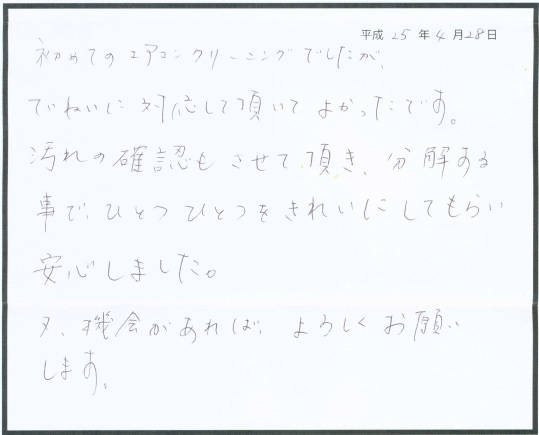 平成 25 年 4 月 28 日
初めてのエアコンクリーニングでしたが、
ていねいに対応して頂いてよかったです。
汚れの確認もさせて頂き、分解する
事で、ひとつひとつをきれいにしてもらい
安心しました。
又、機会があれば、よろしくお願い
します。